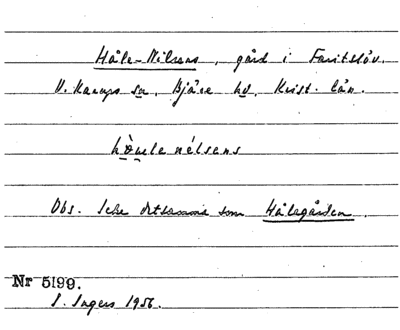 Håle-Nilsens, gård i Faritslöv.
V. Karups sn, Bjäre hd, Krist. län.
hòule nélsens
Obs. Icke detsamma som Hålegården.
Nr 5199.
I. Ingers 1956.